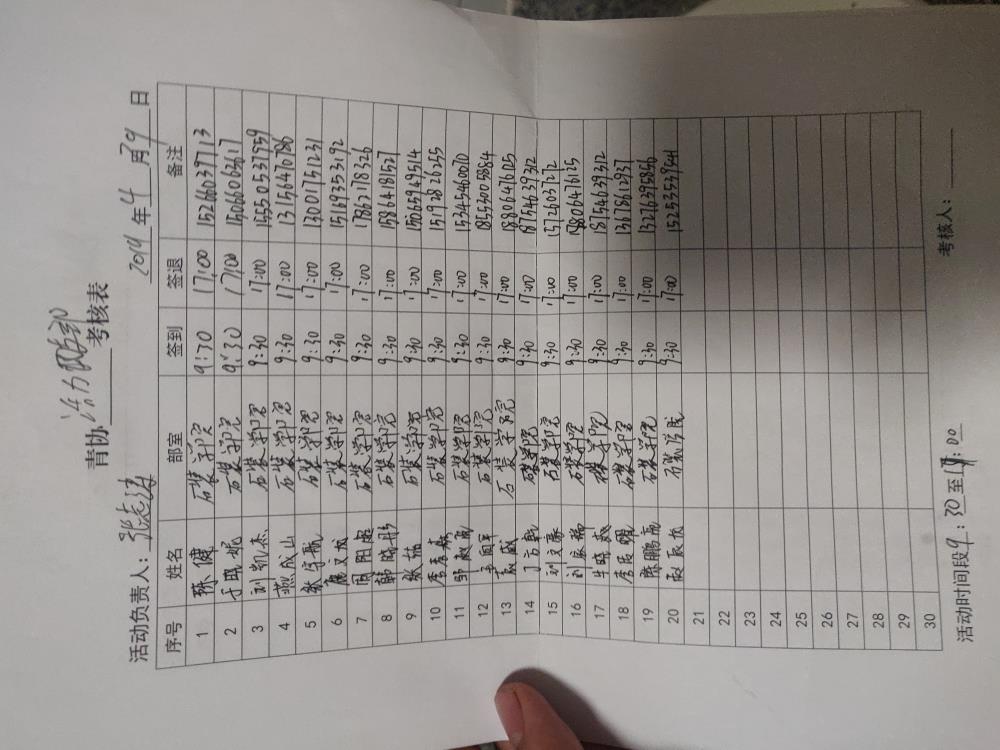 青协活力网宣部考核表
活动负责人：张志涛 2019年4月29日
序号 姓名 部室 签到 签退 备注
1 陈健 石装学院 9:30 17:00 15266039713
2 于晓妮 石装学院 9:30 17:00 15066063617
3 刘凯杰 石装学院 9:30 17:00 15550537959
4 燕成山 石装学院 9:30 17:00
5 张宇航 石装学院 9:30 17:00 13001751231
6 唐文龙 石装学院 9:30 17:00 15169353192
7 周阳超 石装学院 9:30 17:00 17862178326
8 韩晓彤 石装学院 9:30 17:00 15864181527
9 张 石装学院 9:30 17:00 15005949514
10 李 石装学院 9:30 17:00 15192826255
11 石装学院 9:30 17:00 15345460010
12 石装学院 9:30 17:00 18553005884
13 石装学院 9:30 17:00 18806476125
14 石装学院 9:30 17:00 18754639312
15 刘文豪 石装学院 9:30 17:00
16 刘家瑞 石装学院 9:30 17:00 18806476125
17 牛晓 石装学院 9:30 17:00 18754639312
18 李辰曦 石装学院 9:30 17:00 13678612937
19 陈鹏 石装学院 9:30 17:00 13276395856
20 9:30 17:00 15253539541
21
22
23
24
25
26
27
28
29
30
活动时间段9:30至17:00 考核人：